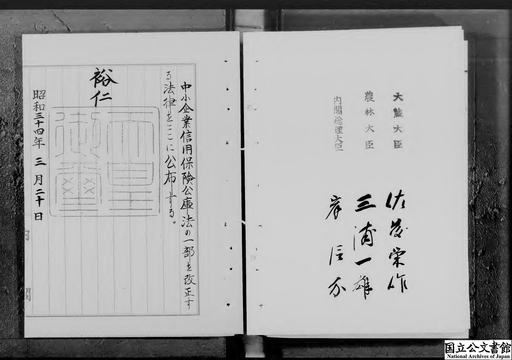 中小企業信用保険公庫法の一部を改正す
る法律をここに公布する。
裕仁
昭和三十四年三月二十日
天皇御璽
大蔵大臣 佐藤栄作
農林大臣 三浦一雄
内閣総理大臣 岸信介
国立公文書館
National Archives of Japan